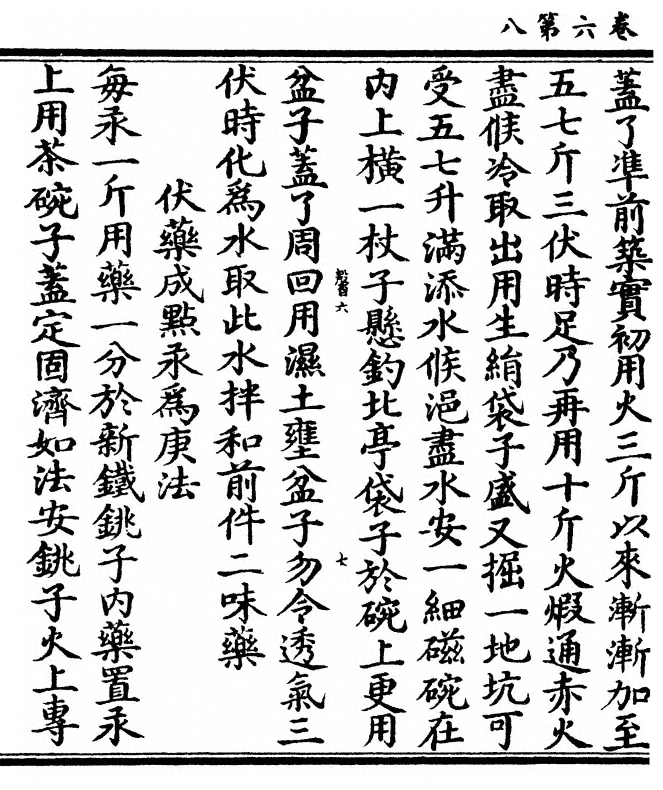 卷六第八
蓋了準前築實初用火三斤以來漸漸加至
五七斤三伏時足乃再用十斤火煆通赤火
盡候冷取出用生絹袋子盛又掘一地坑可
受五七升滿添水候浥盡水安一細磁碗在
內上橫一杖子懸釣北亭袋子於碗上更用
六
七
盆子蓋了周回用濕土壅盆子勿令透氣三
伏時化爲水取此水拌和前件二味藥
伏藥成點汞爲庚法
每汞一斤用藥一分於新鐵銚子內藥置汞
上用茶碗子蓋定固濟如法安銚子火上專